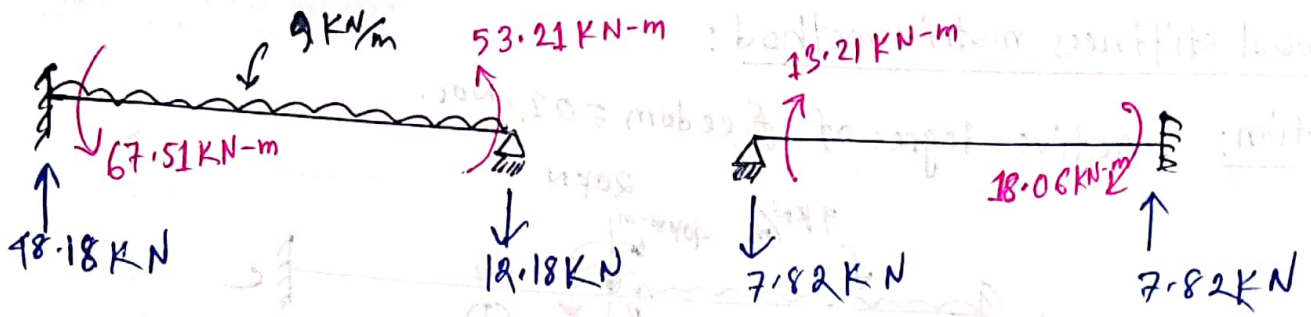 9 KN/m
53.21 KN-m
13.21 KN-m
67.51 KN-m
18.06 KN-m
48.18 KN
12.18 KN
7.82 KN
7.82 KN